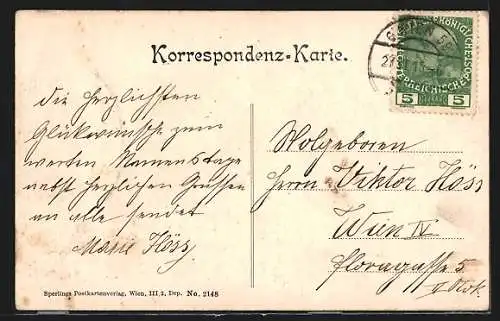 Korrespondenz-Karte.
KAISERLICHKÖNIGLICHE
ÖSTERREICHISCHE POST
5 5
die herzlichsten
Glückwünsche zum
werten Namenstage
nebst herzlichen Grüssen
an alle sendet
Marie Höss
Wolgeboren
Herrn Viktor Höss
Wien IV
Floragasse 5
Sperlings Postkartenverlag, Wien, III 2, Dep. No. 2148